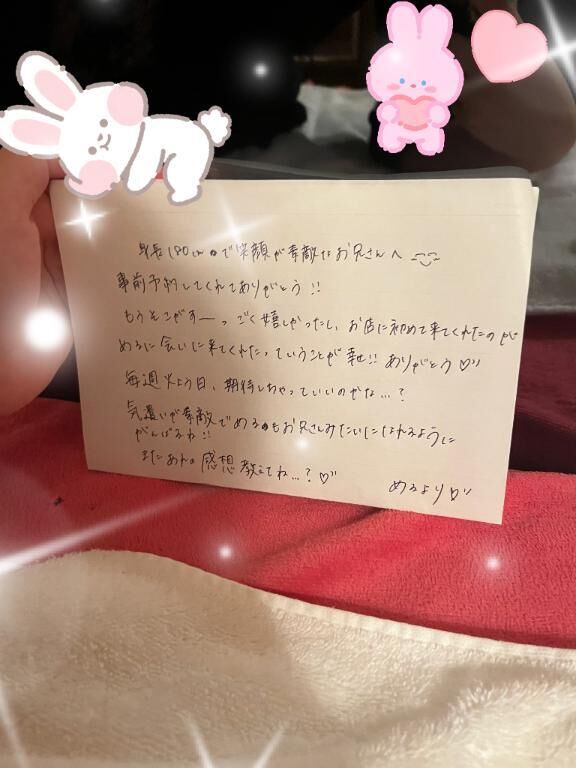 身長180cmので笑顔が素敵なお兄さんへ
事前予約してくれてありがとう!!
もうそこがすーっごく嬉しかったし、お店に初めて来てくれたのが
めるに会いに来てくれたっていうことが幸せ!! ありがとう♡
毎週火よう日、期待しちゃっていいのかな…?
気遣いが素敵でめるもお兄さんみたいになれるように
がんばるね!!
またあれの感想教えてね…?♡
めるより♡